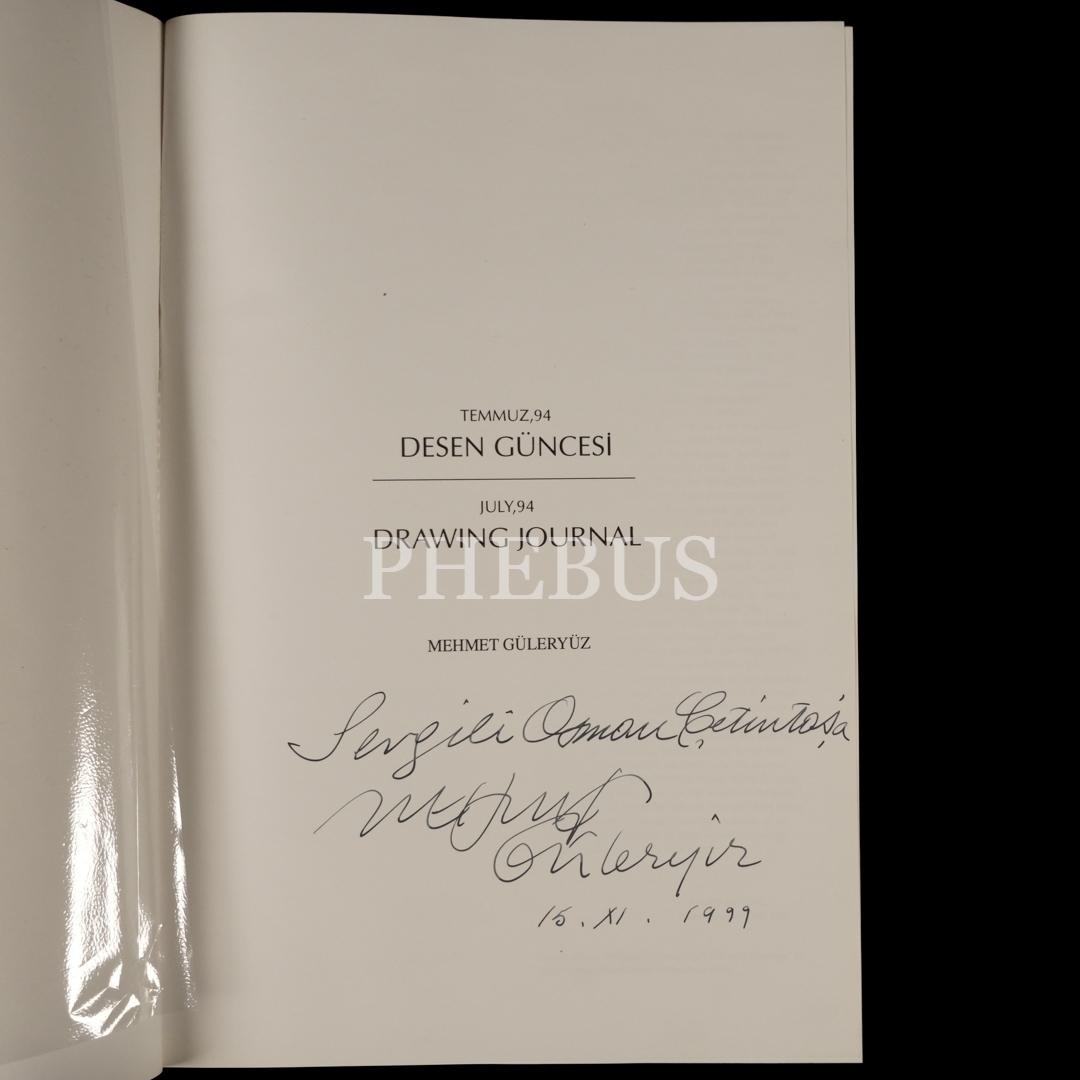 TEMMUZ,94
DESEN GÜNCESİ
JULY,94
DRAWING JOURNAL
PHEBUS
MEHMET GÜLERYÜZ
Sevgili Osman Çetintaş'a
Mehmet
Güleryüz
15.XI.1999